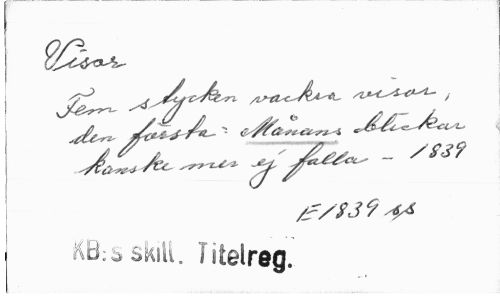 Visor
Fem stycken vackra visor,
den första: Månans blickar
kanske mer ej falla - 1839
E 1839 ss
KB:s skill. Titelreg.